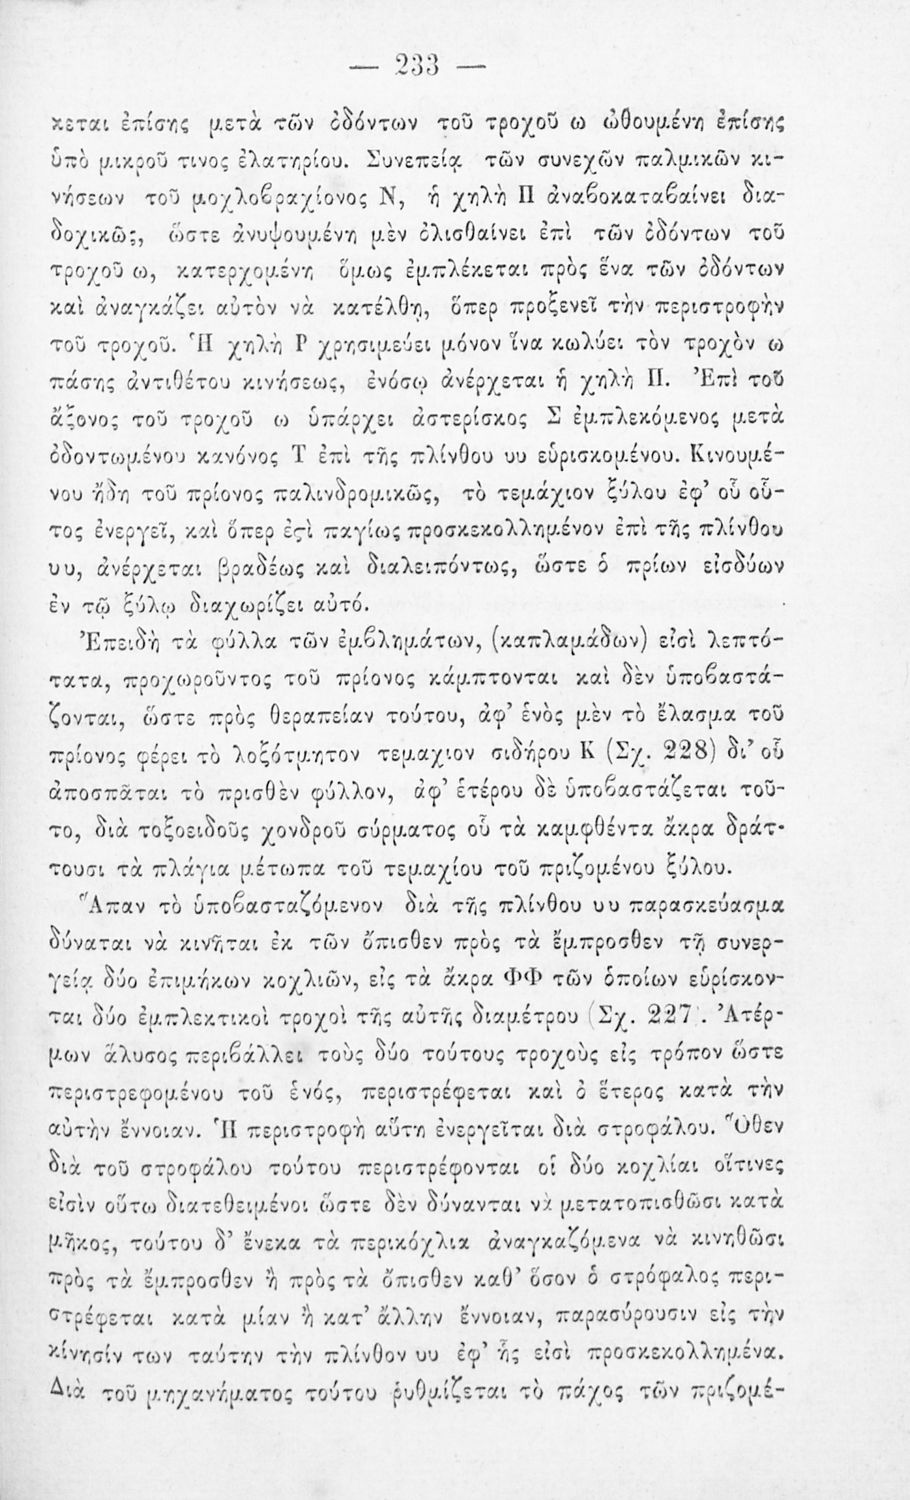 — 233 —
κεται ἐπίσης μετὰ τῶν ὀδόντων τοῦ τροχοῦ ω ὠθουμένη ἐπίσης
ὑπὸ μικροῦ τινος ἐλατηρίου. Συνεπείᾳ τῶν συνεχῶν παλμικῶν κι-
νήσεων τοῦ μοχλοβραχίονος Ν, ἡ χηλὴ Π ἀναβοκαταβαίνει δια-
δοχικῶς, ὥστε ἀνυψουμένη μὲν ὀλισθαίνει ἐπὶ τῶν ὀδόντων τοῦ
τροχοῦ ω, κατερχομένη ὅμως ἐμπλέκεται πρὸς ἕνα τῶν ὀδόντων
καὶ ἀναγκάζει αὐτὸν νὰ κατέλθῃ, ὅπερ προξενεῖ τὴν περιστροφὴν
τοῦ τροχοῦ. Ἡ χηλὴ Ρ χρησιμεύει μόνον ἵνα κωλύει τὸν τροχὸν ω
πάσης ἀντιθέτου κινήσεως, ἐνόσῳ ἀνέρχεται ἡ χηλὴ Π. Ἐπὶ τοῦ
ἄξονος τοῦ τροχοῦ ω ὑπάρχει ἀστερίσκος Σ ἐμπλεκόμενος μετὰ
ὀδοντωμένου κανόνος Τ ἐπὶ τῆς πλίνθου υυ εὑρισκομένου. Κινουμέ-
νου ἤδη τοῦ πρίονος παλινδρομικῶς, τὸ τεμάχιον ξύλου ἐφ’ οὗ οὗ-
τος ἐνεργεῖ, καὶ ὅπερ ἐϛὶ παγίως προσκεκολλημένον ἐπὶ τῆς πλίνθου
υυ, ἀνέρχεται βραδέως καὶ διαλειπόντως, ὥστε ὁ πρίων εἰσδύων
ἐν τῷ ξύλῳ διαχωρίζει αὐτό.
Ἐπειδὴ τὰ φύλλα τῶν ἐμβλημάτων, (καπλαμάδων) εἰσὶ λεπτό-
τατα, προχωροῦντος τοῦ πρίονος κάμπτονται καὶ δὲν ὑποβαστά-
ζονται, ὥστε πρὸς θεραπείαν τούτου, ἀφ’ ἑνὸς μὲν τὸ ἔλασμα τοῦ
πρίονος φέρει τὸ λοξότμητον τεμαχιον σιδήρου Κ (Σχ. 228) δι’ οὗ
ἀποσπᾶται τὸ πρισθὲν φύλλον, ἀφ’ ἑτέρου δὲ ὑποβαστάζεται τοῦ-
το, διὰ τοξοειδοῦς χονδροῦ σύρματος οὗ τὰ καμφθέντα ἄκρα δράτ-
τουσι τὰ πλάγια μέτωπα τοῦ τεμαχίου τοῦ πριζομένου ξύλου.
Ἅπαν τὸ ὑποβασταζόμενον διὰ τῆς πλίνθου υυ παρασκεύασμα
δύναται νὰ κινῆται ἐκ τῶν ὄπισθεν πρὸς τὰ ἔμπροσθεν τῇ συνερ-
γείᾳ δύο ἐπιμήκων κοχλιῶν, εἰς τὰ ἄκρα ΦΦ τῶν ὁποίων εὑρίσκον-
ται δύο ἐμπλεκτικοὶ τροχοὶ τῆς αὐτῆς διαμέτρου (Σχ. 227). Ἀτέρ-
μων ἅλυσος περιβάλλει τοὺς δύο τούτους τροχοὺς εἰς τρόπον ὥστε
περιστρεφομένου τοῦ ἑνός, περιστρέφεται καὶ ὁ ἕτερος κατὰ τὴν
αὐτὴν ἔννοιαν. Ἡ περιστροφὴ αὕτη ἐνεργεῖται διὰ στροφάλου. Ὅθεν
διὰ τοῦ στροφάλου τούτου περιστρέφονται οἱ δύο κοχλίαι οἵτινες
εἰσὶν οὕτω διατεθειμένοι ὥστε δὲν δύνανται νὰ μετατοπισθῶσι κατὰ
μῆκος, τούτου δ’ ἕνεκα τὰ περικόχλια ἀναγκαζόμενα νὰ κινηθῶσι
πρὸς τὰ ἔμπροσθεν ἢ πρὸς τὰ ὄπισθεν καθ’ ὅσον ὁ στρόφαλος περι-
στρέφεται κατὰ μίαν ἢ κατ’ ἄλλην ἔννοιαν, παρασύρουσιν εἰς τὴν
κίνησίν των ταύτην τὴν πλίνθον υυ ἐφ’ ἧς εἰσὶ προσκεκολλημένα.
Διὰ τοῦ μηχανήματος τούτου ῥυθμίζεται τὸ πάχος τῶν πριζομέ-